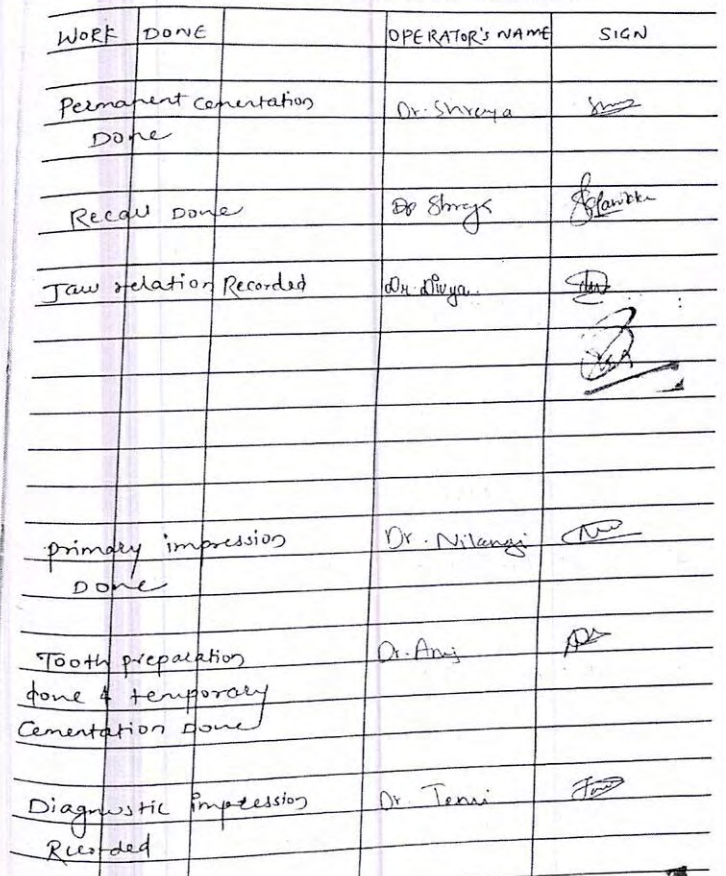 WORK DONE OPERATOR'S NAME SIGN
Permanent cementation Dr. Shreya
Done
Recall Done Dr
Jaw relation Recorded Dr. Divya
primary impression Dr. Nilangi
Done
Tooth preparation Dr. Anuj
done & temporary
Cementation Done
Diagnostic impression Dr.
Recorded